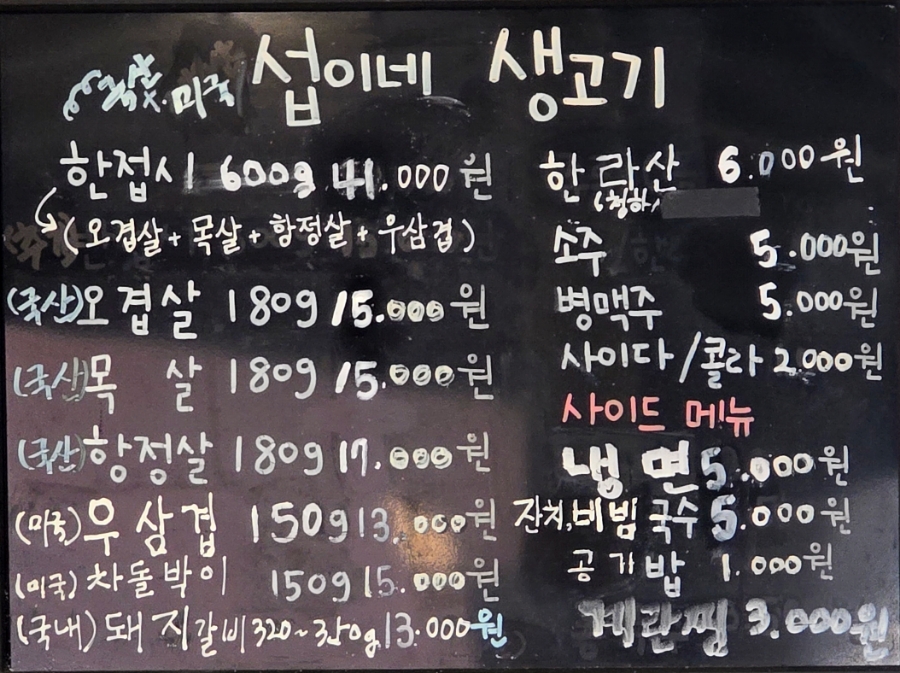 미국 섭이네 생고기
한접시 600g 41.000원
(오겹살+목살+항정살+우삼겹)
(국산)오겹살 180g 15.000원
(국산)목 살 180g 15.000원
(국산)항정살 180g 17.000원
(미국)우삼겹 150g 13.000원
(미국)차돌박이 150g 15.000원
(국내)돼지갈비 320~350g 13.000원
한라산 6.000원
(청하)
소주 5.000원
병맥주 5.000원
사이다/콜라 2.000원
사이드 메뉴
냉면 5.000원
잔치,비빔국수 5.000원
공기밥 1.000원
계란찜 3.000원